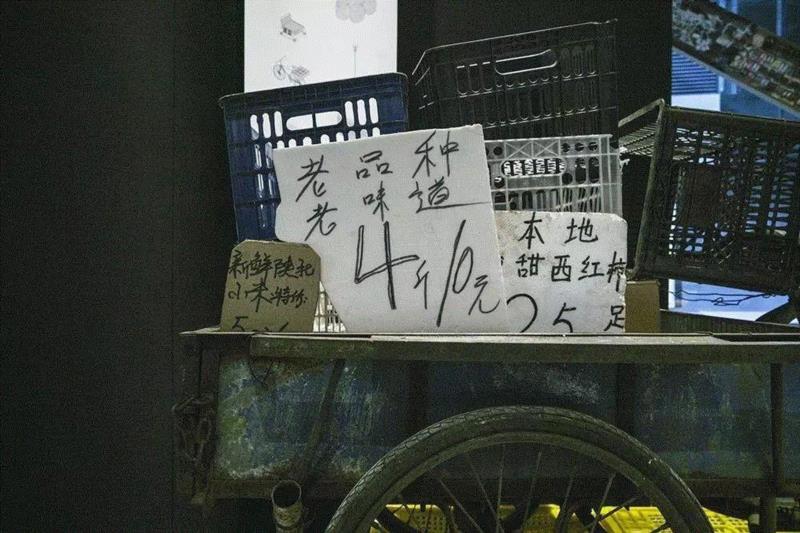 老品种
老味道
4斤10元
新鲜陕北
小米特价
本地
甜西红柿
25足